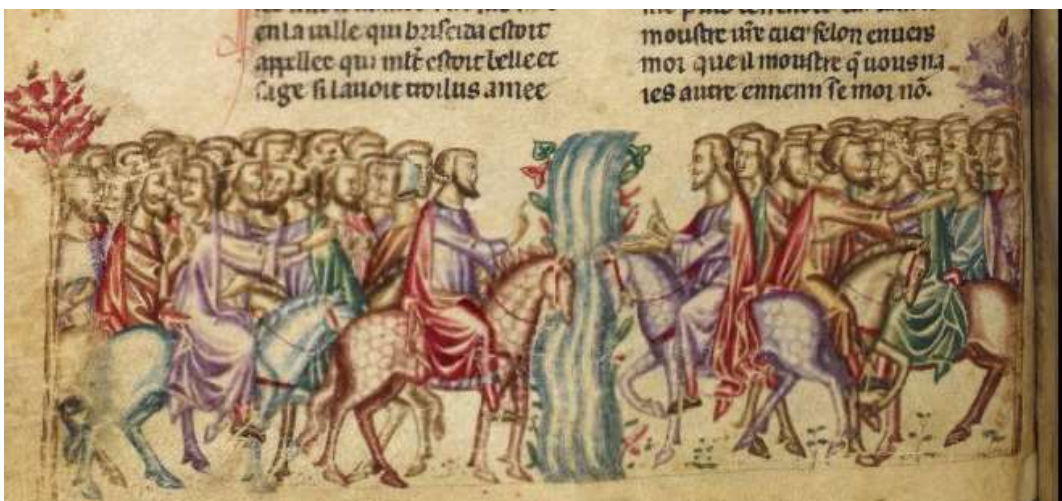 enla ualle qui briseida estoit
appellee qui mlt estoit belle et
sage si lauoit troilus amee
moustre ur̄e cuer felon enuers
moi que il moustre q̄ uous na
ies autre ennemi se moi nō.